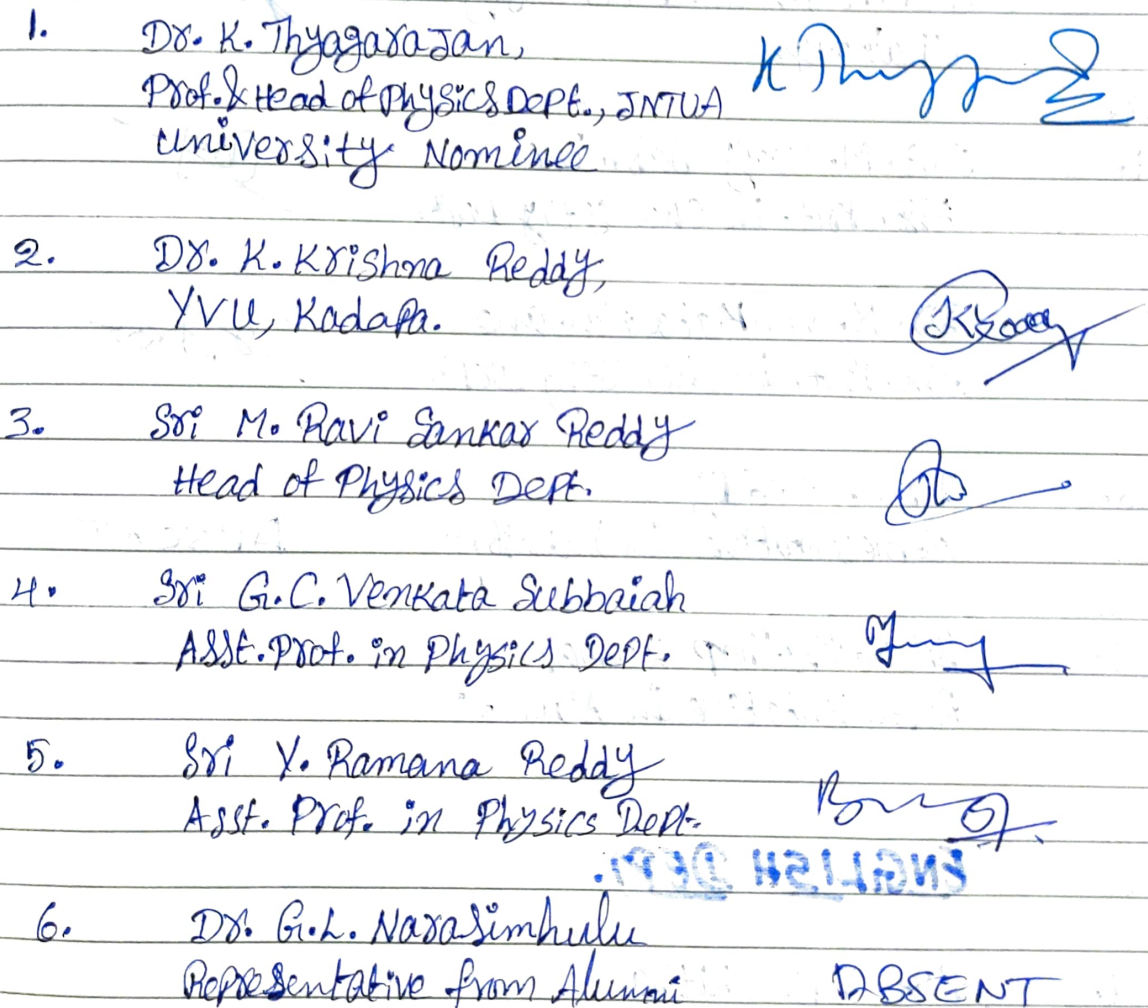 1. Dr. K. Thyagarajan,
Prof. & Head of Physics Dept., JNTUA
University Nominee
2. Dr. K. Krishna Reddy,
YVU, Kadapa.
3. Sri M. Ravi Sankar Reddy
Head of Physics Dept.
4. Sri G.C. Venkata Subbaiah
Asst. Prof. in Physics Dept.
5. Sri Y. Ramana Reddy
Asst. Prof. in Physics Dept.
ENGLISH DEPT.
6. Dr. G.L. Narasimhulu
Representative from Alumni ABSENT